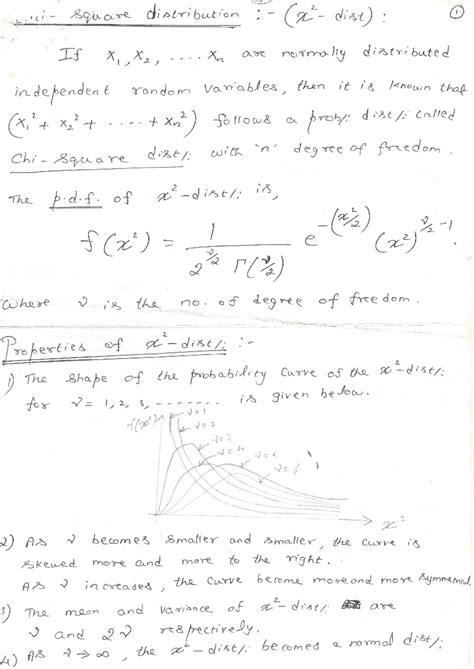 Chi- square distribution :- (x² - dist) : ①
If X₁, X₂, ..... Xn are normally distributed
independent random variables, then it is known that
(X₁² + X₂² + ..... + Xn²) follows a prob/: dist/: called
Chi-square dist/: with 'n' degree of freedom.
The p.d.f. of x²-dist/: is,
f(x²) = 1 / (2^(ν/2) Γ(ν/2)) e^-(x²/2) (x²)^(ν/2 -1).
where ν is the no. of degree of freedom.
Properties of x²-dist/: :-
1) The shape of the probability curve of the x²-dist/:
for ν = 1, 2, 3, ....... is given below.
f(x²)
ν=1
ν=2
ν=3
ν=4
ν=5
ν=6
x²
2) As ν becomes smaller and smaller, the curve is
skewed more and more to the right.
As ν increases, the curve become more and more symmetrical.
3) The mean and variance of x²-dist/: are
ν and 2ν respectively.
4) As ν → ∞, the x²-dist/: becomes a normal dist/: